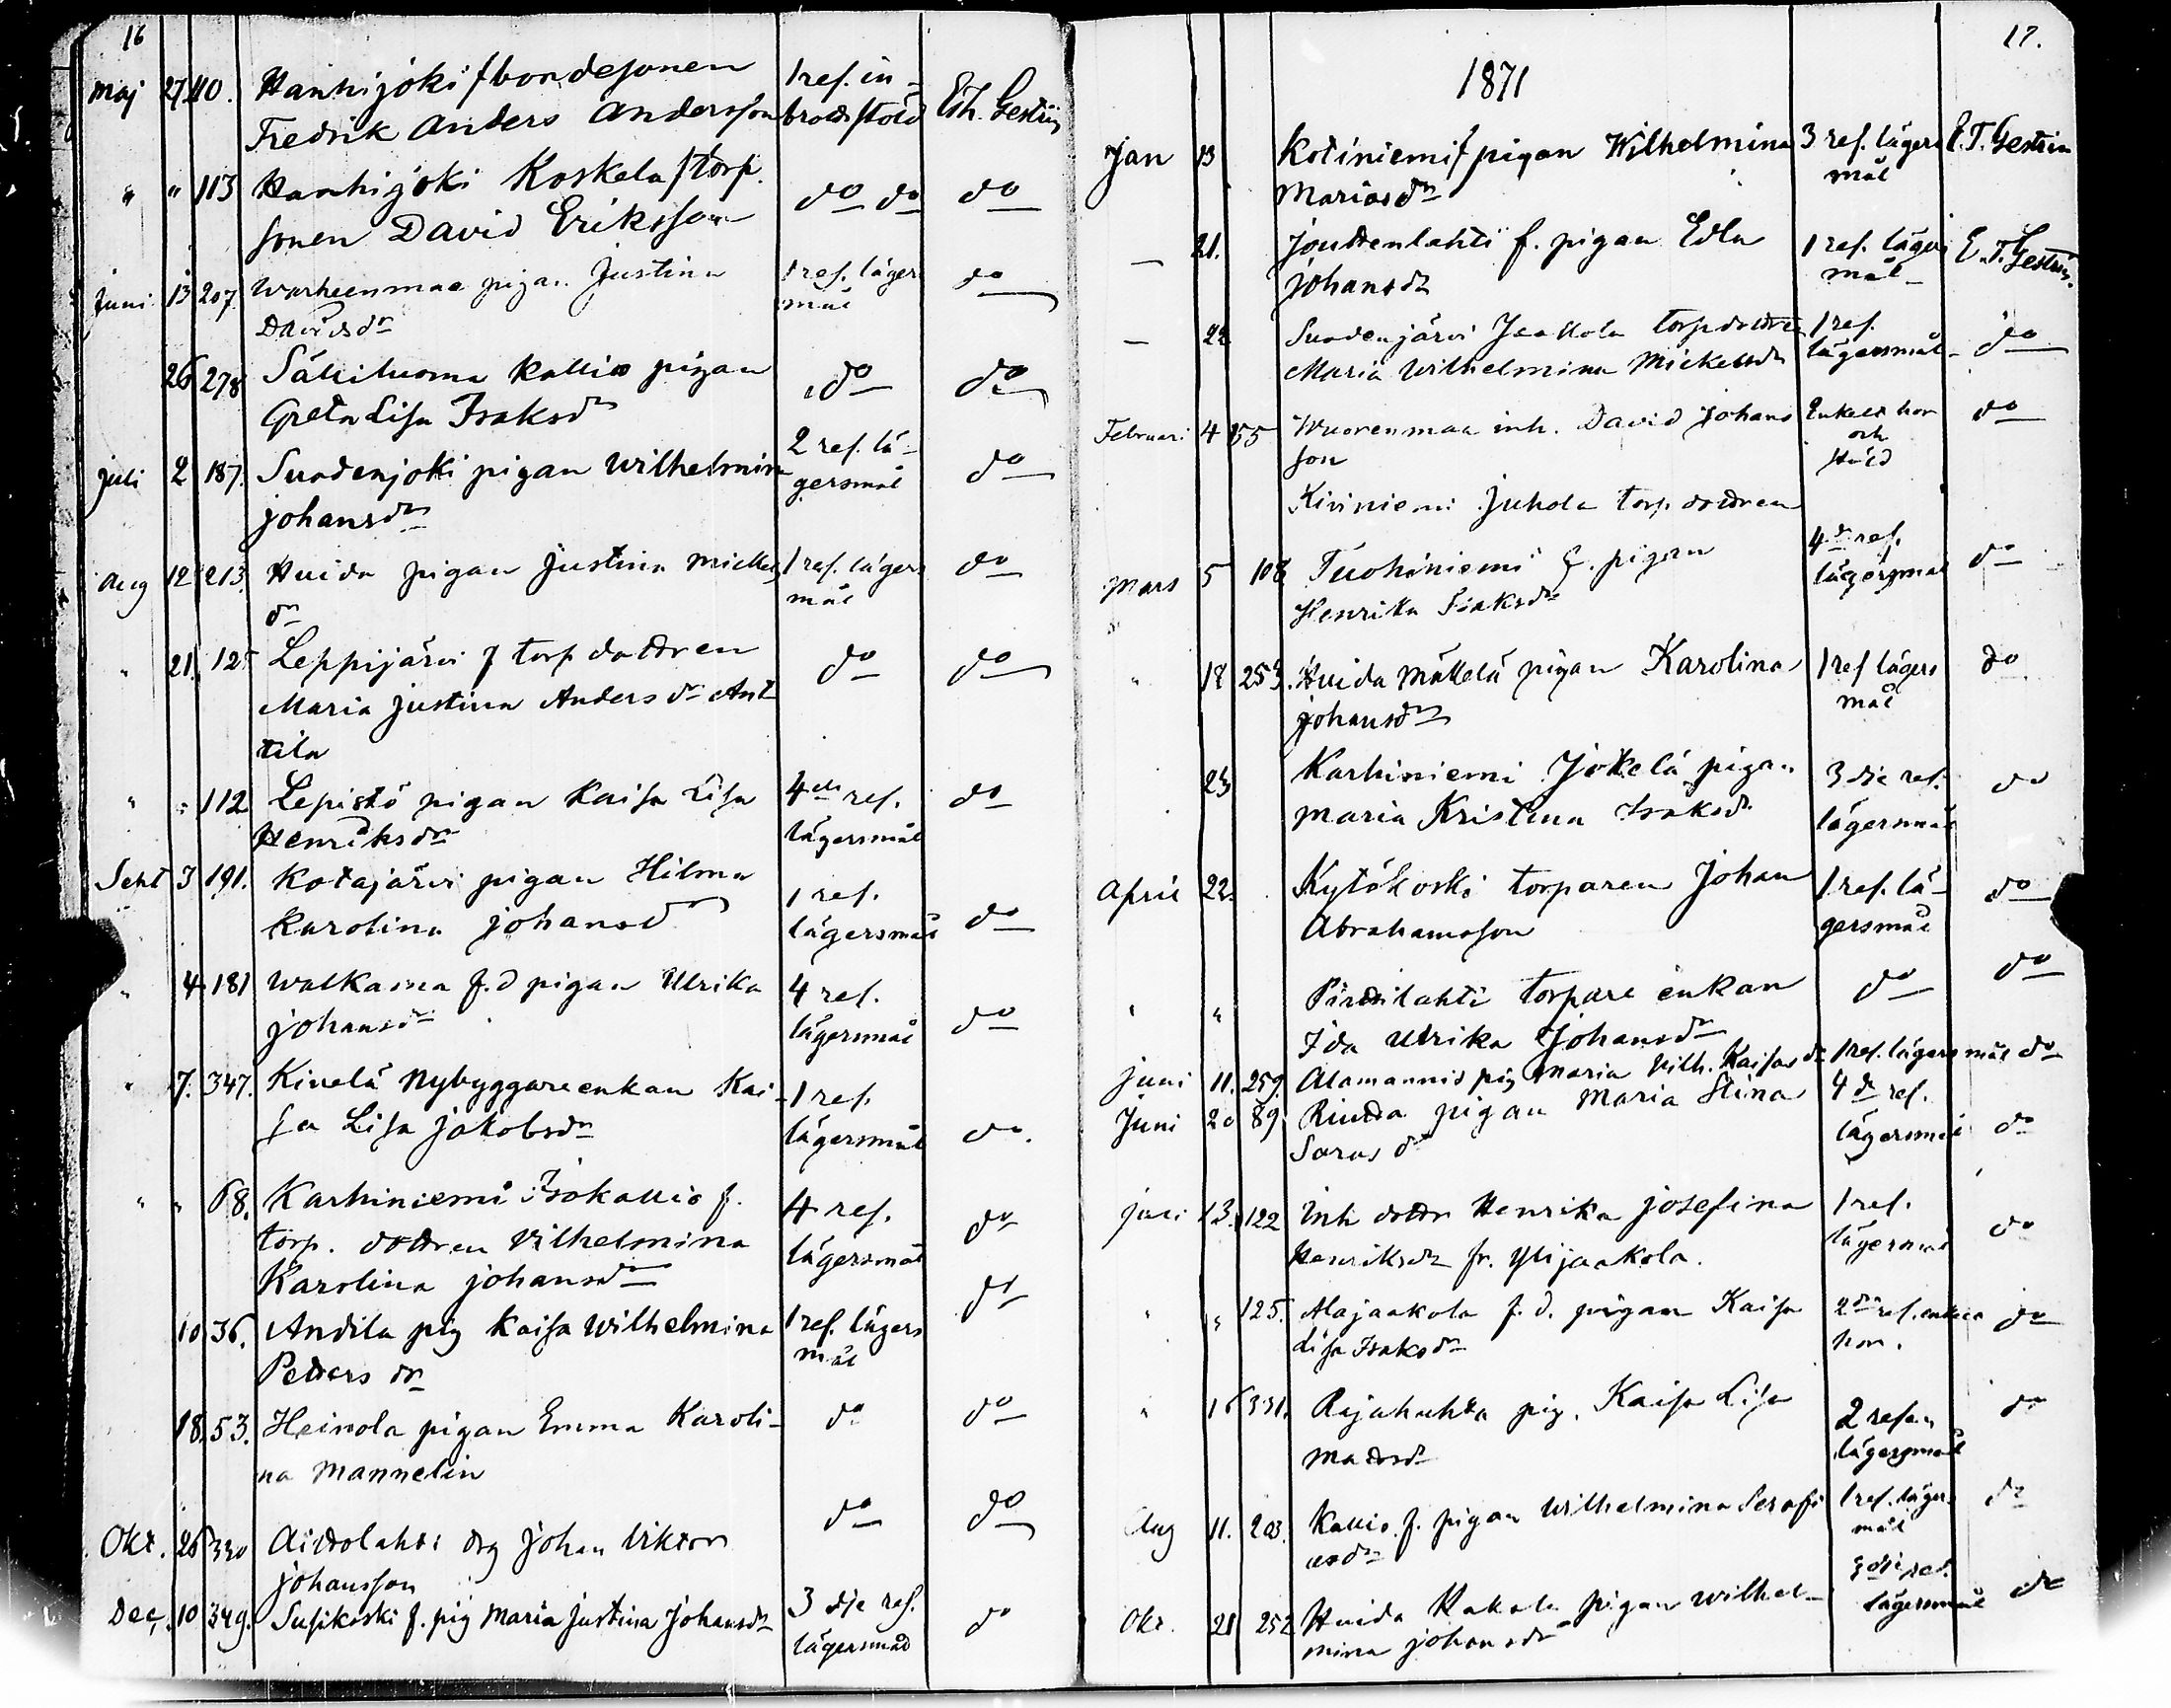 16
Maj 27 110. Hanhijoki f bondesonen 1 ref. in-
Fredrik Anders Andersson brotts stöld Eth. Gestrin
" " 113 Hanhijoki Koskela f torp. do do do
sonen David Eriksson
Juni 13 207 Warheenmaa pigan Justina 1 ref. lägers do
Davidsdr mål
26 278 Sälliluoma Kallio pigan do do
Greta Lisa Isaksdr
Juli 2 187. Suodenjoki pigan Wilhelmina 2 ref. lä- do
Johansdr gersmål
Aug 12 213. Huida pigan Justina Mickels 1 ref. lägers do
dr mål
" 21. 125 Leppijärvi f torp dottren do do
Maria Justina Andersdr Ant
tila
" " 112 Lepistö pigan Kaisa Lisa 4de ref. do
Henriksdr lägersmål
Sept 3 191. Kotajärvi pigan Hilma 1 ref.
Karolina Johansd lägersmål do
" 4 181 Walkama f.d pigan Ulrika 4 ref.
Johansdr lägersmål do
" 7. 347. Kivelä Nybyggareenkan Kai- 1 ref.
sa Lisa Jakobsdr lägersmål do.
" " 68. Karhiniemi Isokallio f. 4 ref. do
torp. dottren Vilhelmina lägersmål
Karolina Johansdr
10 36. Andila pig Kaisa Wilhelmina 1 ref. lägers do
Petters dr mål
18. 53. Heinola pigan Emma Karoli- do do
na Mannelin
Okt. 26 330 Aittolahti drg Johan Viktor do do
Johansson
Dec. 10 349. Susikoski f. pig Maria Justina Johansdr 3 dje ref. do
lägersmål
17.
1871
Jan 13 Kotiniemi f pigan Wilhelmina 3 ref. lägers E. T. Gestrin
Mariasdr mål
— 21. Jouttenlahti f. pigan Edla 1 ref. lägers E. T. Gestrin.
Johansdr mål
— 22 Suodenjärvi Jaakkola torp dottren 1 ref. do
Maria Wilhelmina Mickelsdr lägersmål
Februari 4 155 Wuorenmaa inh. David Johans Enkelt hor do
son och
stöld
Kiviniemi Juhola torp dottren
Mars 5 108 Tuohiniemi f. pigan 4de ref. do
Henrika Isaksdr lägersmål
" 18 253. Huida Mäkelä pigan Karolina 1 ref lägers do
Johansdr mål
23 Karhiniemi Jokela pigan 3 dje ref. do
Maria Kristina Isaksdr lägersmål
April 22. Kytökoski torparen Johan 1 ref. lä- do
Abrahamsson gersmål
" " Pirttilahti torpare enkan do do
Ida Ulrika Johansdr
Juni 11. 259. Alamannis pig Maria Vilh. Kaisasdr 1 ref. lägersmål do
Juni 20 89. Rintta pigan Maria Stina 4de ref.
Saras dr lägersmål do
Juli 13. 122 Inh dottr Henrika Josefina 1 ref. do
Henriksdr fr. Ylijaakola. lägersmål
" " 125. Alajaakola f. d. pigan Kaisa 2dra ref. enkelt do
Lisa Isaksdr hor.
" 16 331. Rajahuhta pig. Kaisa Lisa 2 resan do
Mattsdr lägersmål
Aug 11. 203. Kallio f. pigan Wilhelmina Serafi 1 ref. lägers do
asdr mål
Okt. 21 252 Huida Kakola pigan Wilhel- 3 dje ref. do
mina Johansdr lägersmål